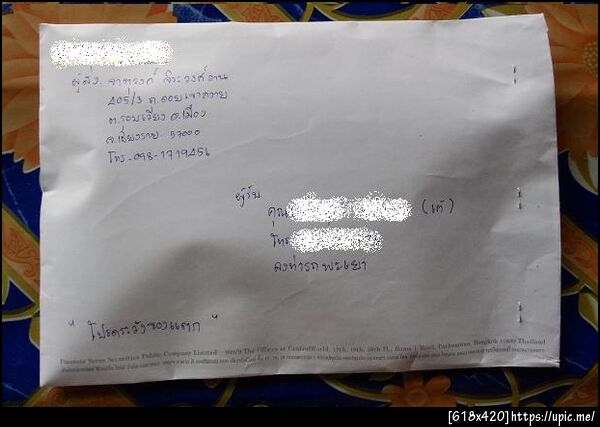 ผู้ส่ง. จาตุรงค์ จิระวงศ์งาน
405/3 ถ.ดอยเขาควาย
ต.รอบเวียง อ.เมือง
จ.เชียงราย 57000
โทร.098-1719456
ผู้รับ
คุณ (เต้)
โทร
ลงท่ารถ พะเยา
" โปรดระวังของแตก "
Finansia Syrus Securities Public Company Limited 999/9 The Offices at CentralWorld, 17th, 18th, 25th Fl., Rama 1 Road, Pathumwan, Bangkok 10330 Thailand
[618x420]https://upic.me/